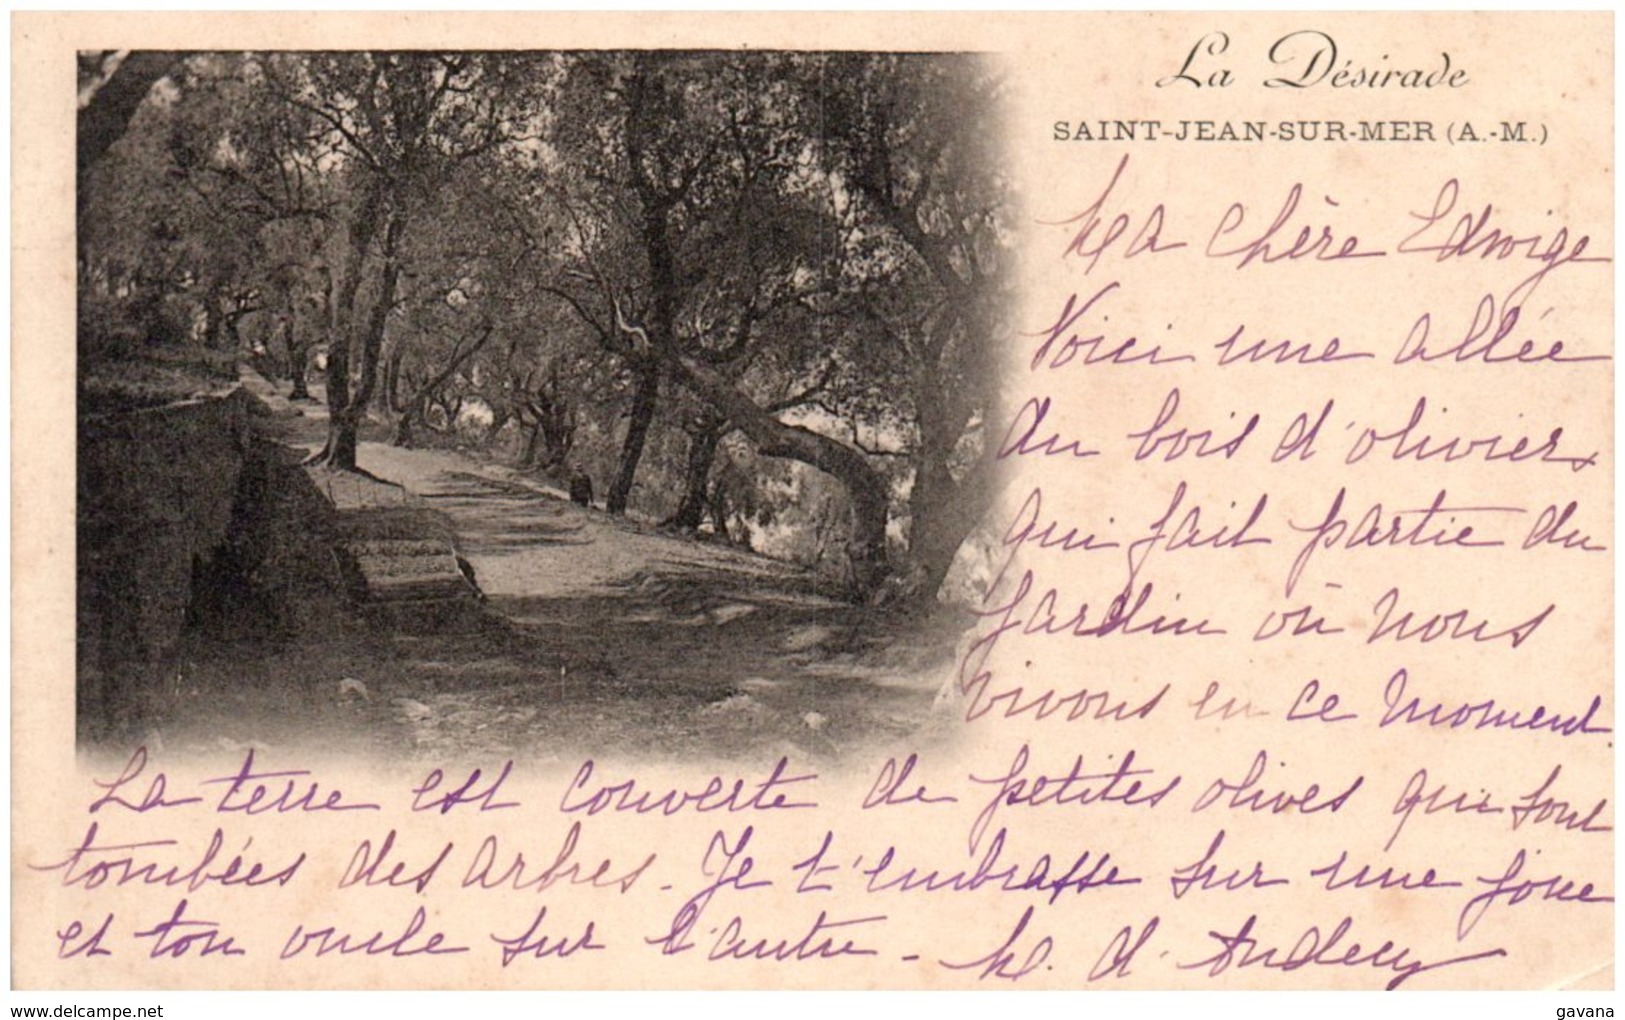 La Désirade
SAINT-JEAN-SUR-MER (A.-M.)
Ma chère Edwige
Voici une allée
du bois d'oliviers
qui fait partie du
jardin où nous
vivons en ce moment.
La terre est couverte de petites olives qui sont
tombées des arbres. Je t'embrasse sur une joue
et ton oncle sur l'autre - M. d.
gavana
www.delcampe.net